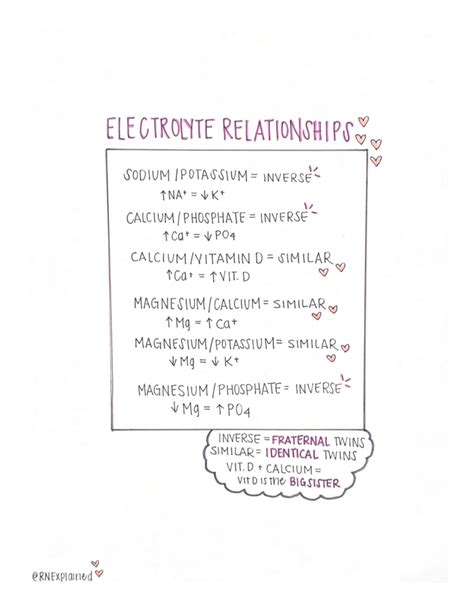 ELECTROLYTE RELATIONSHIPS
SODIUM/POTASSIUM = INVERSE
↑NA⁺ = ↓K⁺
CALCIUM/PHOSPHATE = INVERSE
↑Ca⁺ = ↓PO4
CALCIUM/VITAMIN D = SIMILAR
↑Ca⁺ = ↑VIT. D
MAGNESIUM/CALCIUM = SIMILAR
↑Mg = ↑Ca⁺
MAGNESIUM/POTASSIUM = SIMILAR
↓Mg = ↓K⁺
MAGNESIUM/PHOSPHATE = INVERSE
↓Mg = ↑PO4
INVERSE = FRATERNAL TWINS
SIMILAR = IDENTICAL TWINS
VIT. D + CALCIUM =
Vit D is the BIG SISTER
@RNExplained